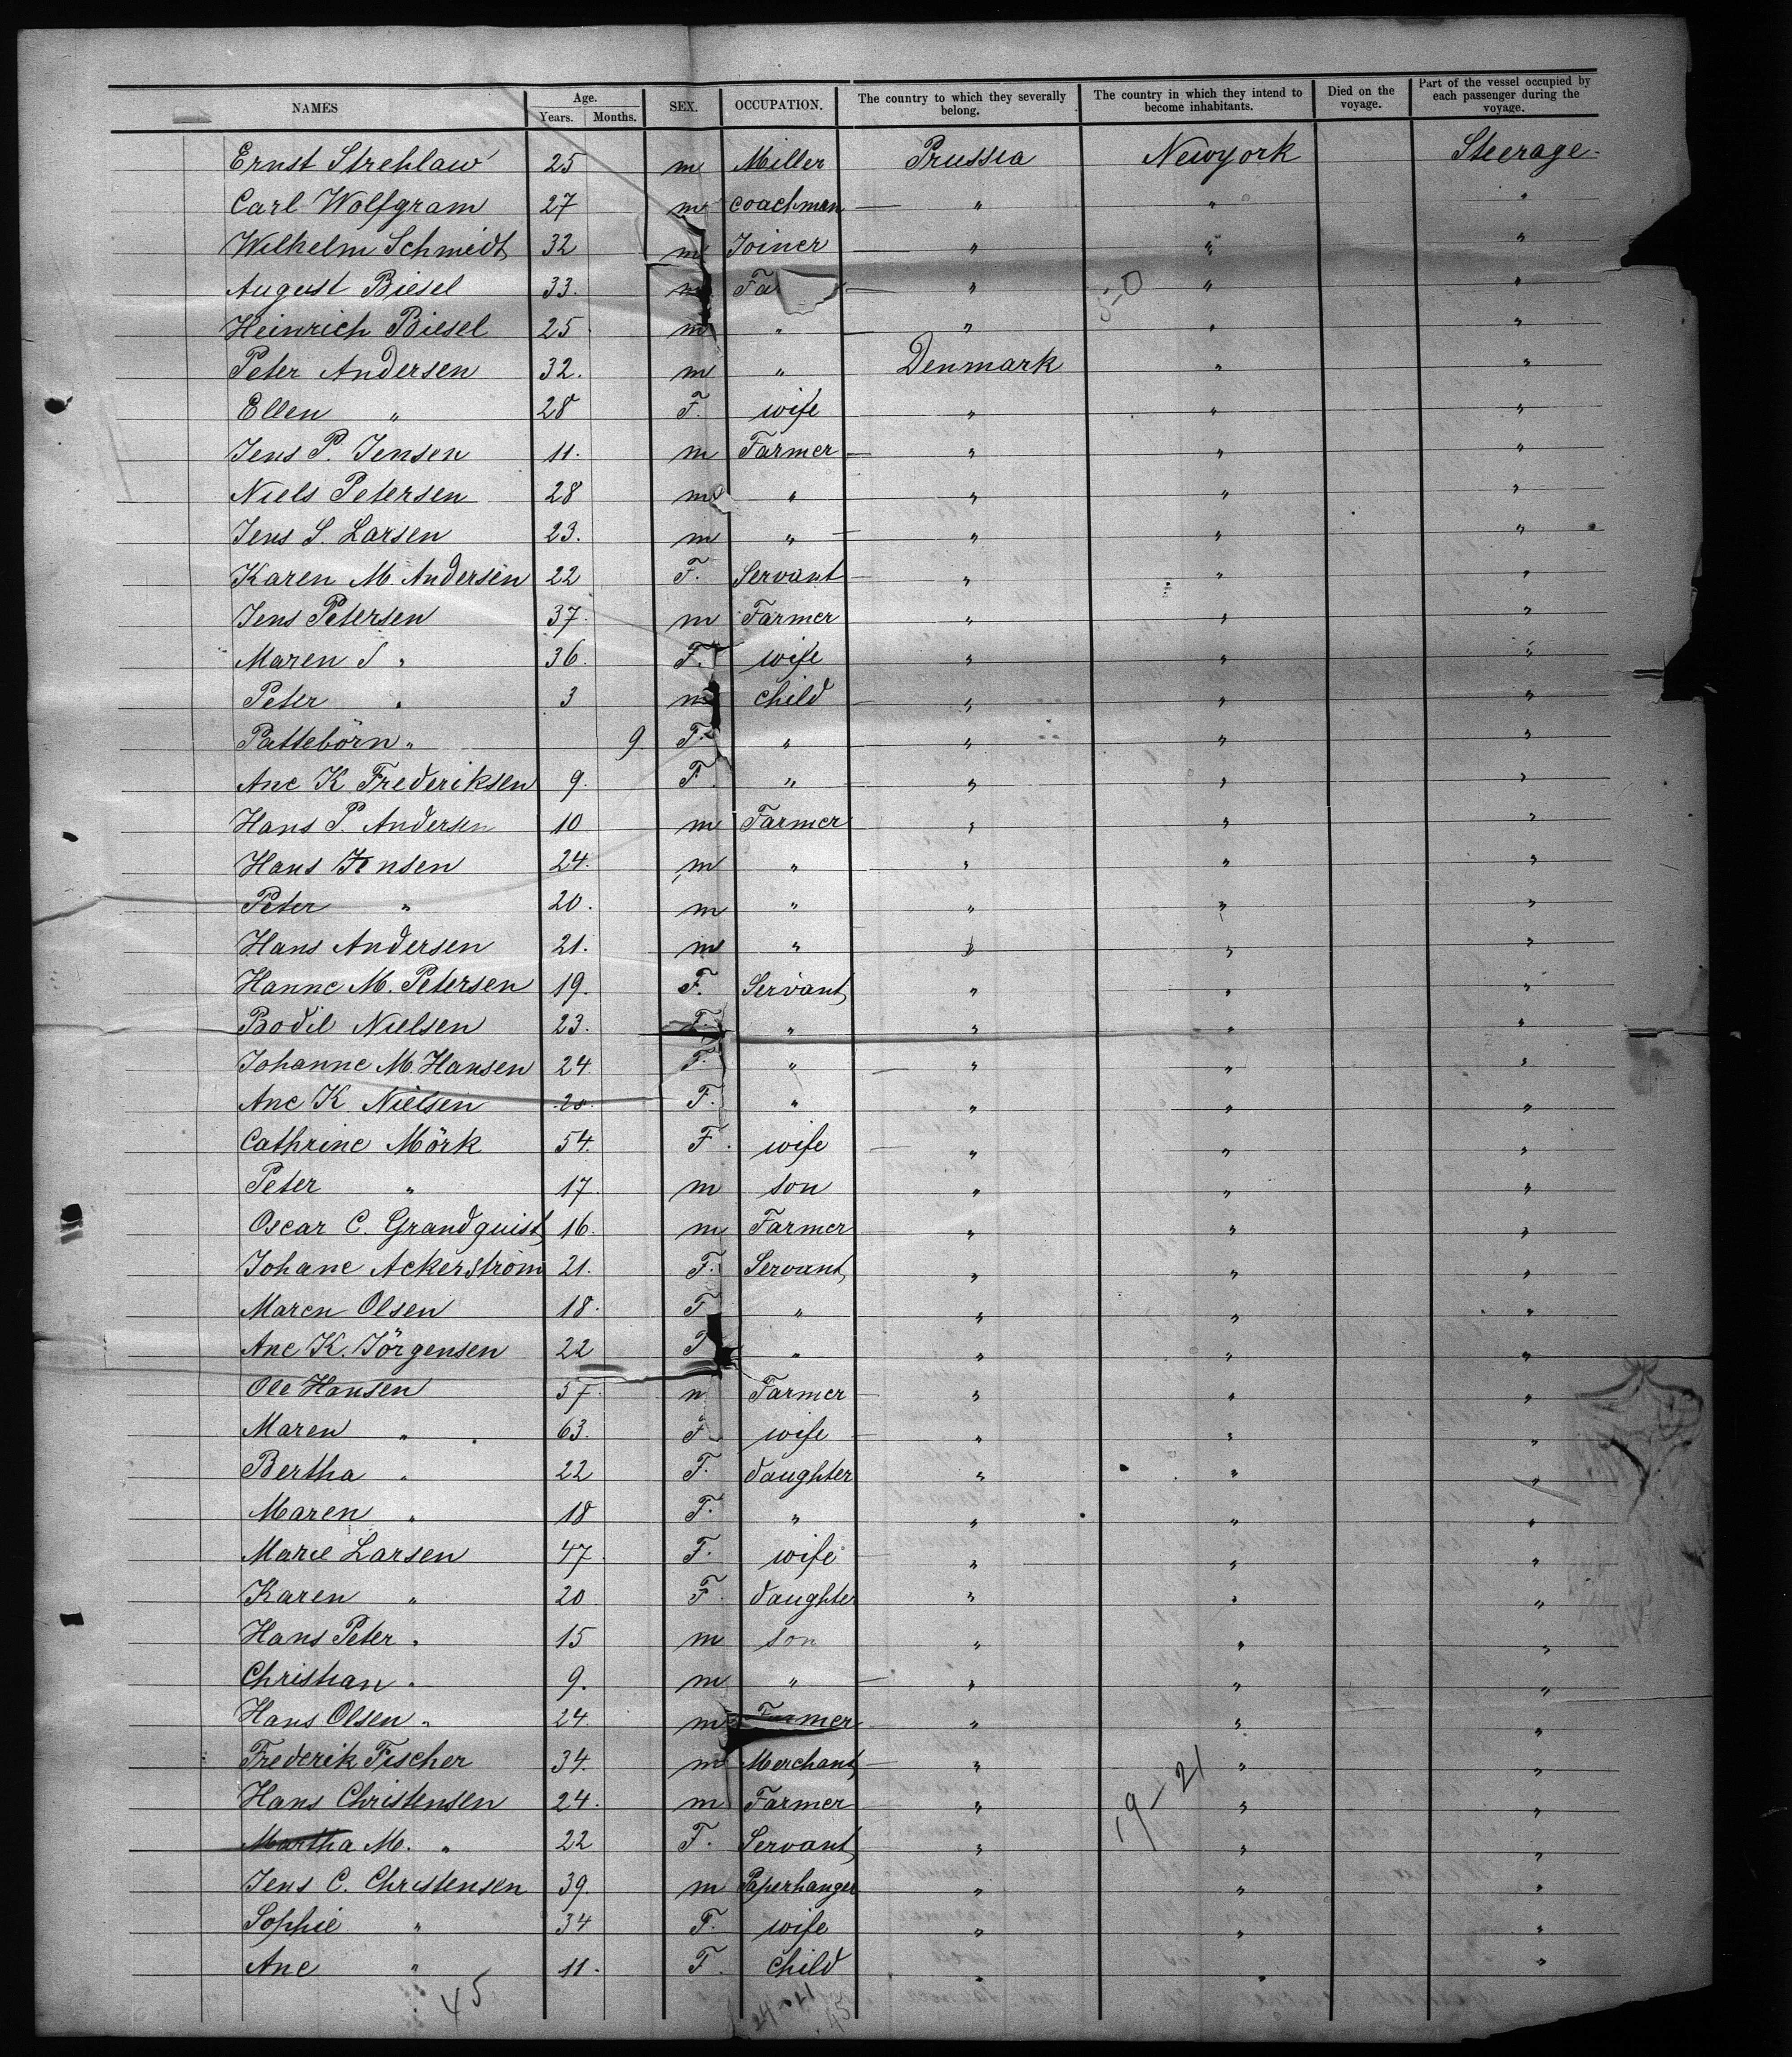 NAMES Age. Years. Months. SEX. OCCUPATION. The country to which they severally belong. The country in which they intend to become inhabitants. Died on the voyage. Part of the vessel occupied by each passenger during the voyage.
Ernst Strehlaw 25 m Miller Prussia Newyork Steerage
Carl Wolfgram 27 m Coachman " " "
Wilhelm Schmidt 32 m Joiner " " "
August Biesel 33. m Fa " 5-0 " "
Heinrich Biesel 25 m " " " "
Peter Andersen 32. m " Denmark " "
Ellen " 28 F. wife " " "
Jens P. Jensen 11. m Farmer " " "
Niels Petersen 28 m " " " "
Jens S. Larsen 23. m " " " "
Karen M. Andersen 22 F. Servant " " "
Jens Petersen 37. m Farmer " " "
Maren S " 36. F. wife " " "
Peter " 3 m child " " "
Pattebörn " 9 F. " " " "
Ane K Frederiksen 9. F. " " " "
Hans P. Andersen 10 m Farmer " " "
Hans Jensen 24. m " " " "
Peter " 20. m " " " "
Hans Andersen 21. m " " " "
Hanne M. Petersen 19. F. Servant " " "
Bodil Nielsen 23. F. " " " "
Johanne M. Hansen 24. F. " " " "
Ane K Nielsen 20. F. " " " "
Cathrine Mörk 54. F. wife " " "
Peter " 17. m son " " "
Oscar C. Grandquist 16. m Farmer " " "
Johane Ackerström 21. F. Servant " " "
Maren Olsen 18. F " " " "
Ane K. Jörgensen 22 F " " " "
Ole Hansen 57. m Farmer " " "
Maren " 63. F wife " " "
Bertha " 22 F. daughter " " "
Maren " 18 F. " " " "
Marie Larsen 47 F. wife " " "
Karen " 20 F. daughter " " "
Hans Peter " 15 m son " " "
Christian " 9. m " " " "
Hans Olsen " 24. m Farmer " " "
Frederik Fischer 34. m Merchant " " "
Hans Christensen 24. m Farmer " 19-21 " "
Martha M. " 22 F. Servant " " "
Jens C. Christensen 39. m Paperhanger " " "
Sophie " 34 F. wife " " "
Ane " 11. F. child " " "
45 24-21 45